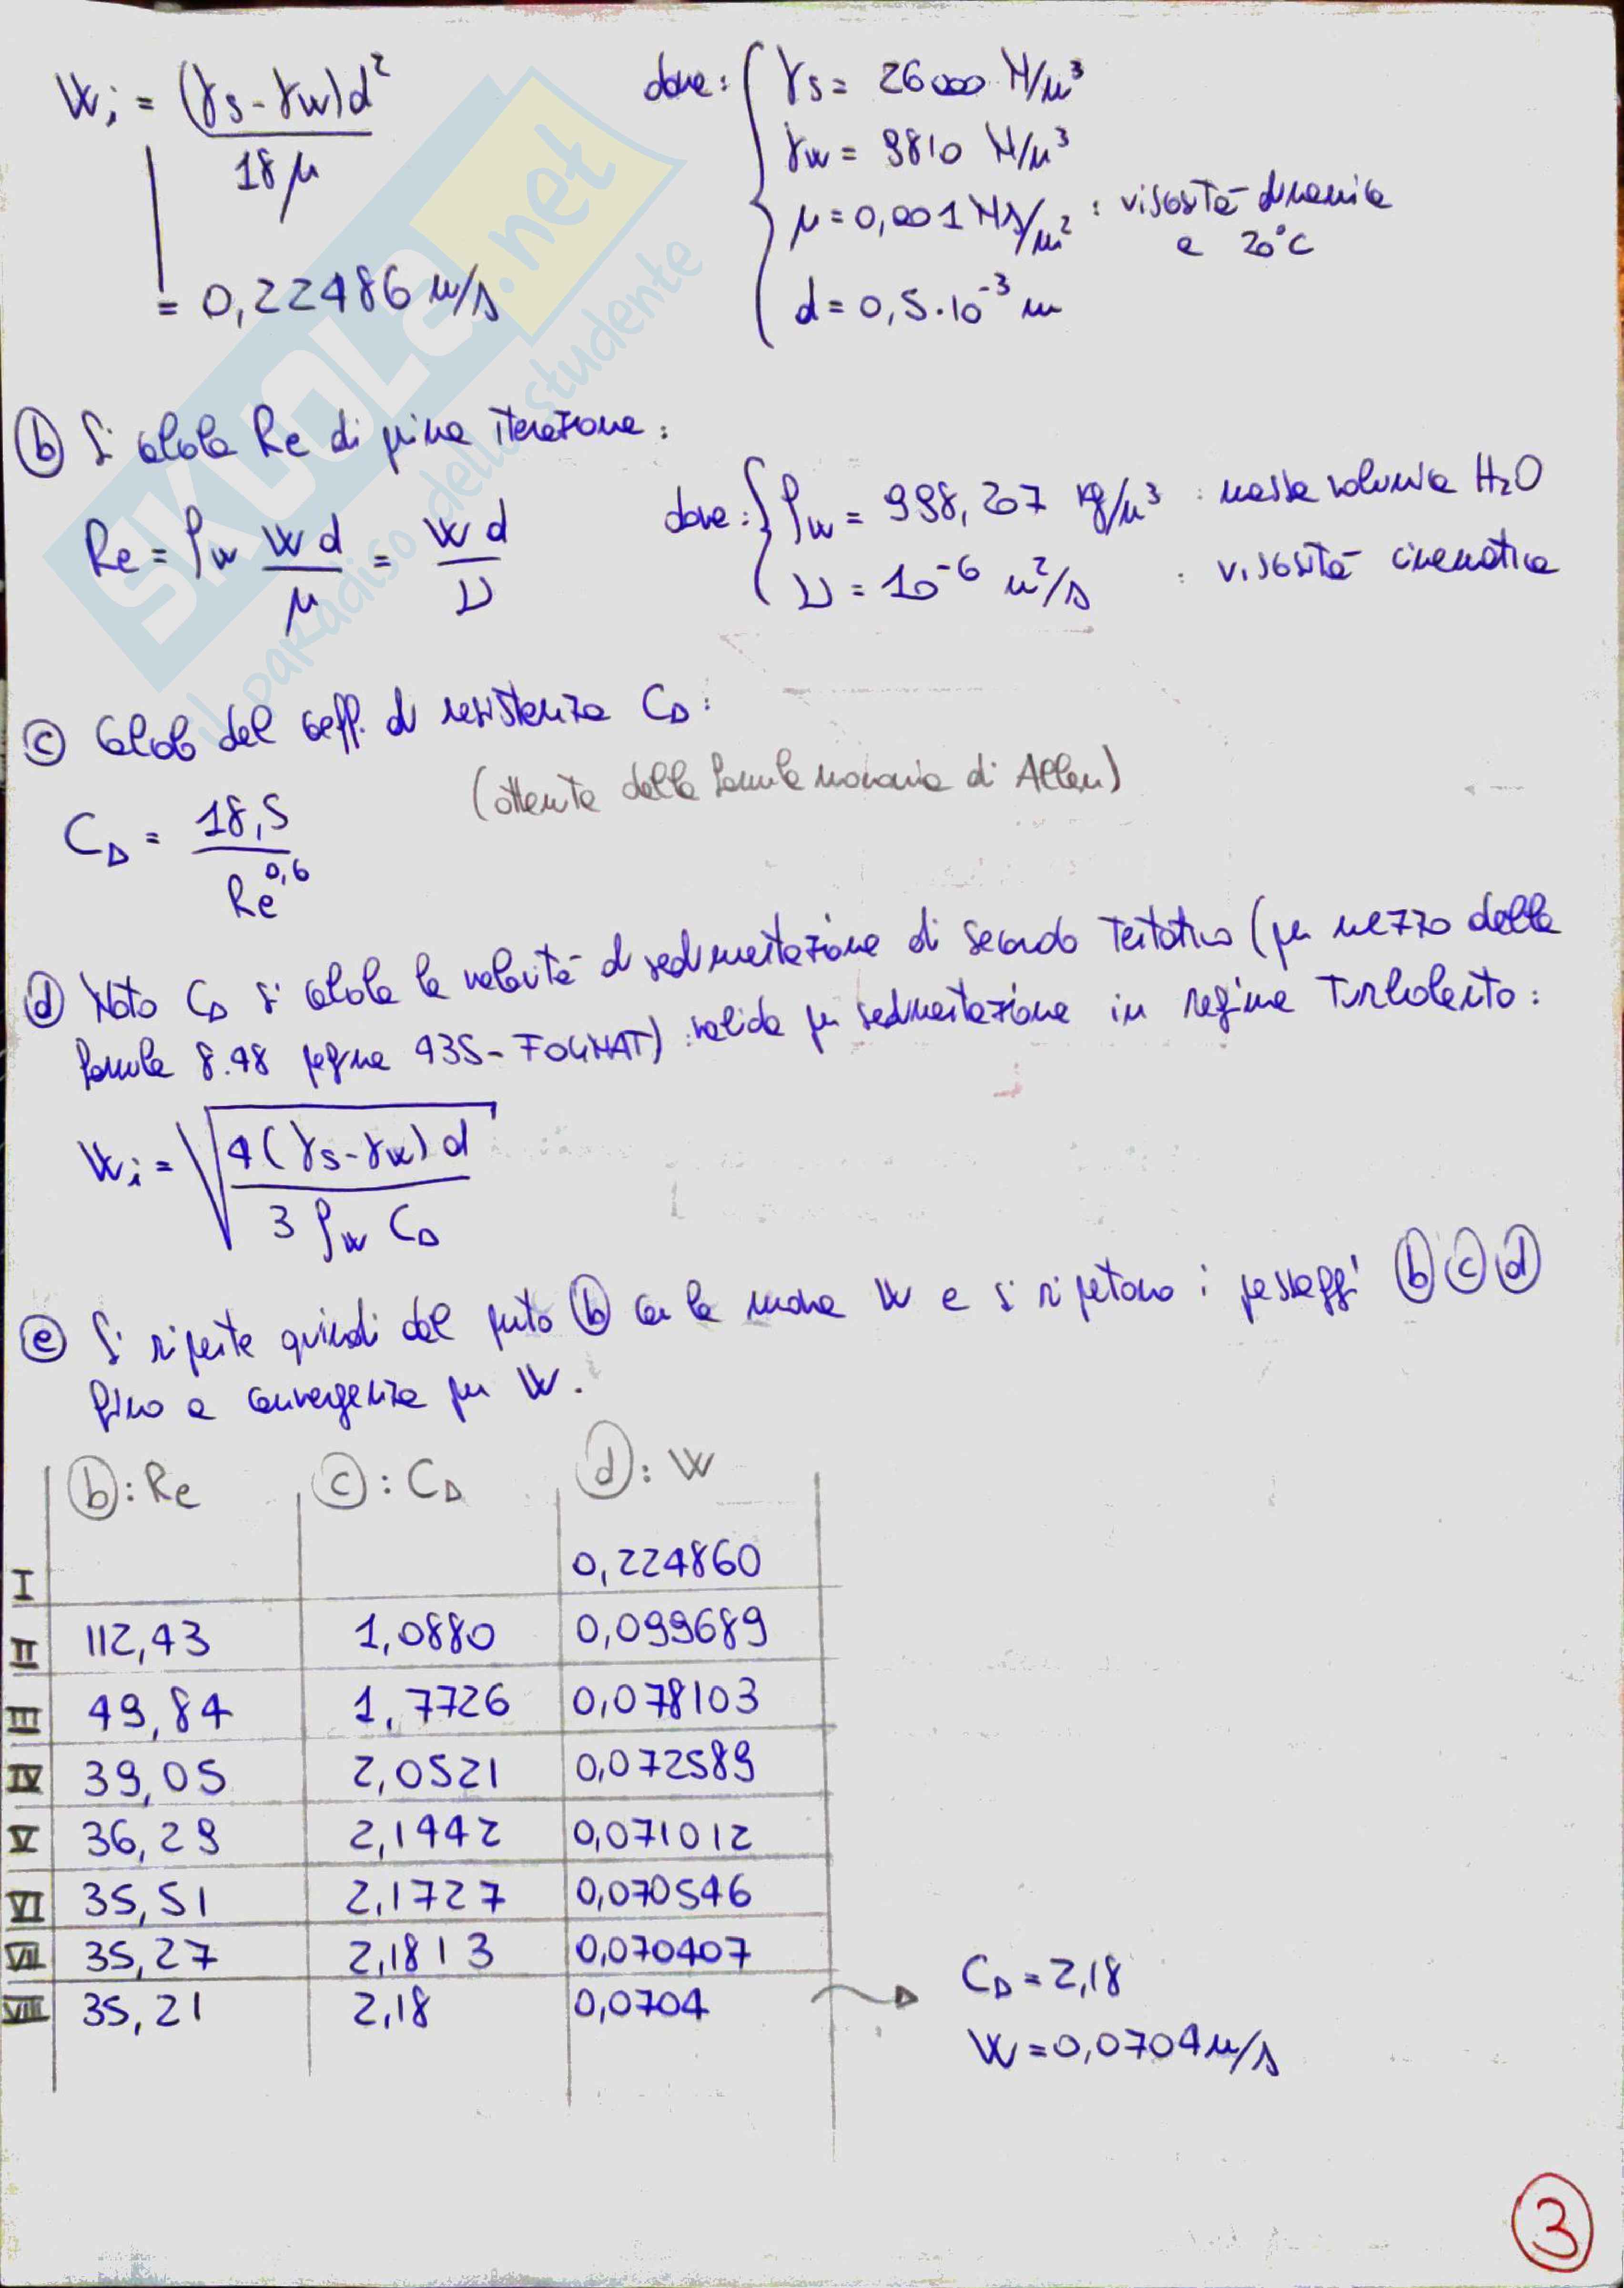 Wi = (γs - γw)d² / 18μ
= 0,22486 m/s
dove: γs = 26000 N/m³
γw = 9810 N/m³
μ = 0,001 Ns/m² : viscosità dinamica
a 20°C
d = 0,5·10⁻³ m
SKUOLA.net
il paradiso dello studente
b Si calcola Re di prima iterazione:
Re = ρw Wd / μ = Wd / ν
dove: ρw = 998,207 kg/m³ : massa volumica H₂O
ν = 10⁻⁶ m²/s : viscosità cinematica
c Calcolo del coeff. di resistenza CD:
(ottenuta dalla formula monomia di Allen)
CD = 18,5 / Re^0,6
d Noto CD si calcola la velocità di sedimentazione di secondo tentativo (per mezzo della
formula 8.48 pagina 435-) valida per sedimentazione in regime turbolento:
Wi = √(4(γs - γw)d / 3ρw CD)
e Si riparte quindi dal punto b con la nuova W e si ripetono i passaggi b c d
fino a convergenza per W.
b: Re c: CD d: W
I 0,224860
II 112,43 1,0880 0,099689
III 49,84 1,7726 0,078103
IV 39,05 2,0521 0,072589
V 36,29 2,1442 0,071012
VI 35,51 2,1727 0,070546
VII 35,27 2,1813 0,070407
VIII 35,21 2,18 0,0704
CD = 2,18
W = 0,0704 m/s
3